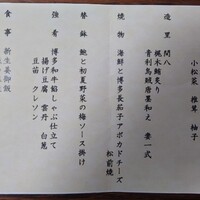 小松菜 椎茸 柚子
造里 間八
梶木鮪炙り
青利烏賊唐墨和え 妻一式
焼物 海鮮と博多長茄子アボカドチーズ
松前焼
替鉢 鮑と初夏野菜の梅ソース掛け
強肴 博多和牛餡しゃぶ仕立て
揚げ豆腐 雲丹 白葱
豆苗 クレソン
食事 新生姜御飯